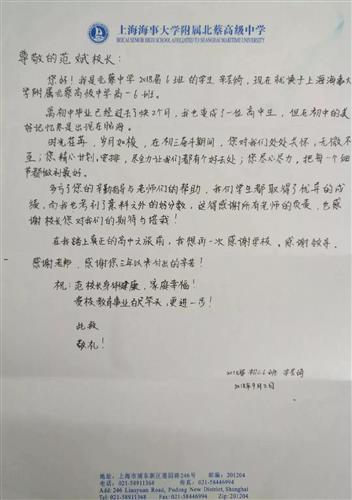 上海海事大学附属北蔡高级中学
BEICAI SENIOR HIGH SCHOOL AFFILIATED TO SHANGHAI MARITIME UNIVERSITY
尊敬的范斌校长：
您好！我是北蔡中学2018届6班的学生，现在就读于上海海事大
学附属北蔡高级中学高一6班。
离初中毕业已经过去了快2个月，我也变成了一位高中生，但在初中的美
好记忆总是出现在脑海。
时光荏苒，岁月如梭，在初三奋斗期间，您对我们处处关怀，无微不
至；您精心计划，安排，尽全力让我们都有个好去处；您尽心尽力，把每一个细
节都做到最好。
多亏了您的辛勤指导与老师们的帮助，我们学生都取得了优异的成
绩，而我也考到了意料之外的好分数，这得感谢所有老师的负责，也感
谢校长您对我们的期待与搭救！
在我踏上真正的高中之旅前，我想再一次感谢学校，感谢领导，
感谢老师，感谢您三年以来付出的辛苦！
祝：范校长身体健康，家庭幸福！
贵校教育事业百尺竿头，更进一步！
此致
敬礼！
2018届 初三6班
2018年9月2日
地址：上海市浦东新区莲园路246号 邮编：201204
电话：021-58911368 传真：021-58446994
Add: 246 Lianyuan Road, Pudong New District, Shanghai
Tel: 021-58911368 Fax: 021-58446994 Zip: 201204